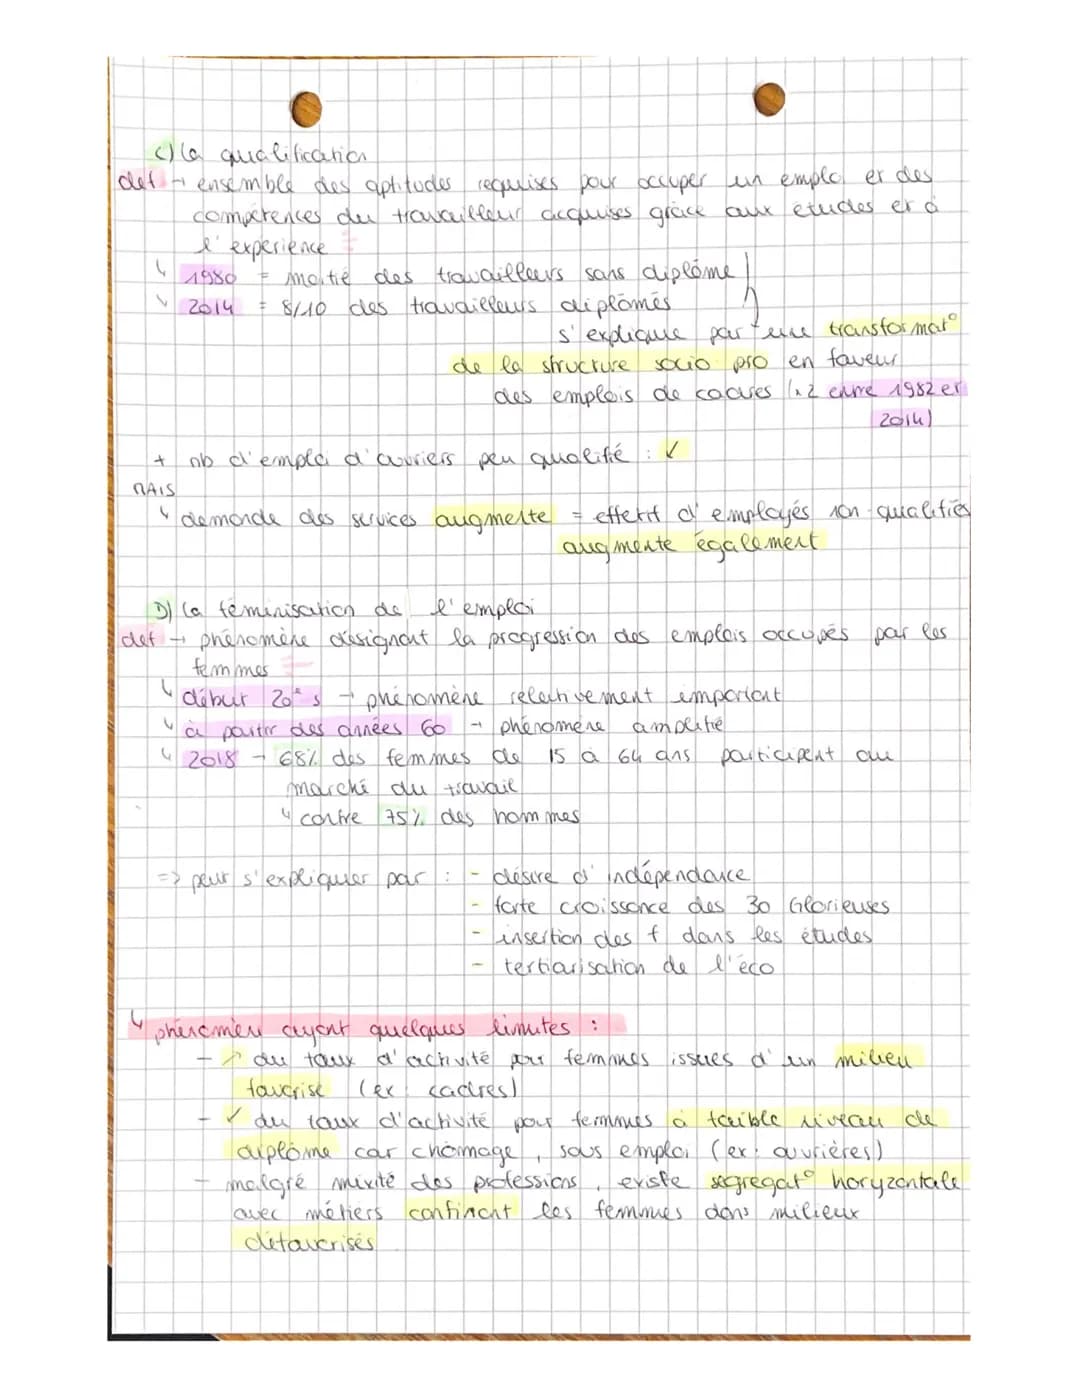 C) la qualification
def → ensemble des aptitudes requises pour occuper un emploi et des
compétences du travailleur acquises grâce aux études et à
l'expérience =
↳ 1980 = moitié des travailleurs sans diplôme
↳ 2014 = 8/10 des travailleurs diplômés
s'explique par une transformat°
de la structure socio pro en faveur
des emplois de cadres (x2 entre 1982 et
2014)
+ nb d'emploi d'ouvriers peu qualifié : ↙
MAIS
↳ demande des services augmente = effectif d'employés non-qualifiés
augmente également
D) la féminisation de l'emploi
def → phénomène désignant la progression des emplois occupés par les
femmes =
↳ début 20e s → phénomène relativement important
↳ à partir des années 60 → phénomène amplifié
↳ 2018 → 68% des femmes de 15 à 64 ans participent au
marché du travail
↳ contre 75% des hommes
=> peut s'expliquer par : - désire d'indépendance
- forte croissance des 30 Glorieuses
- insertion des f dans les études
- tertiarisation de l'éco
↳ phénomène ayant quelques limites :
- ↗ du taux d'activité pour femmes issues d'un milieu
favorisé (ex: cadres)
- ↙ du taux d'activité pour femmes à faible niveau de
diplôme car chômage, sous emploi (ex: ouvrières)
- malgré mixité des professions, existe ségrégat° horyzontale
avec métiers confinant les femmes dans milieux
défavorisés